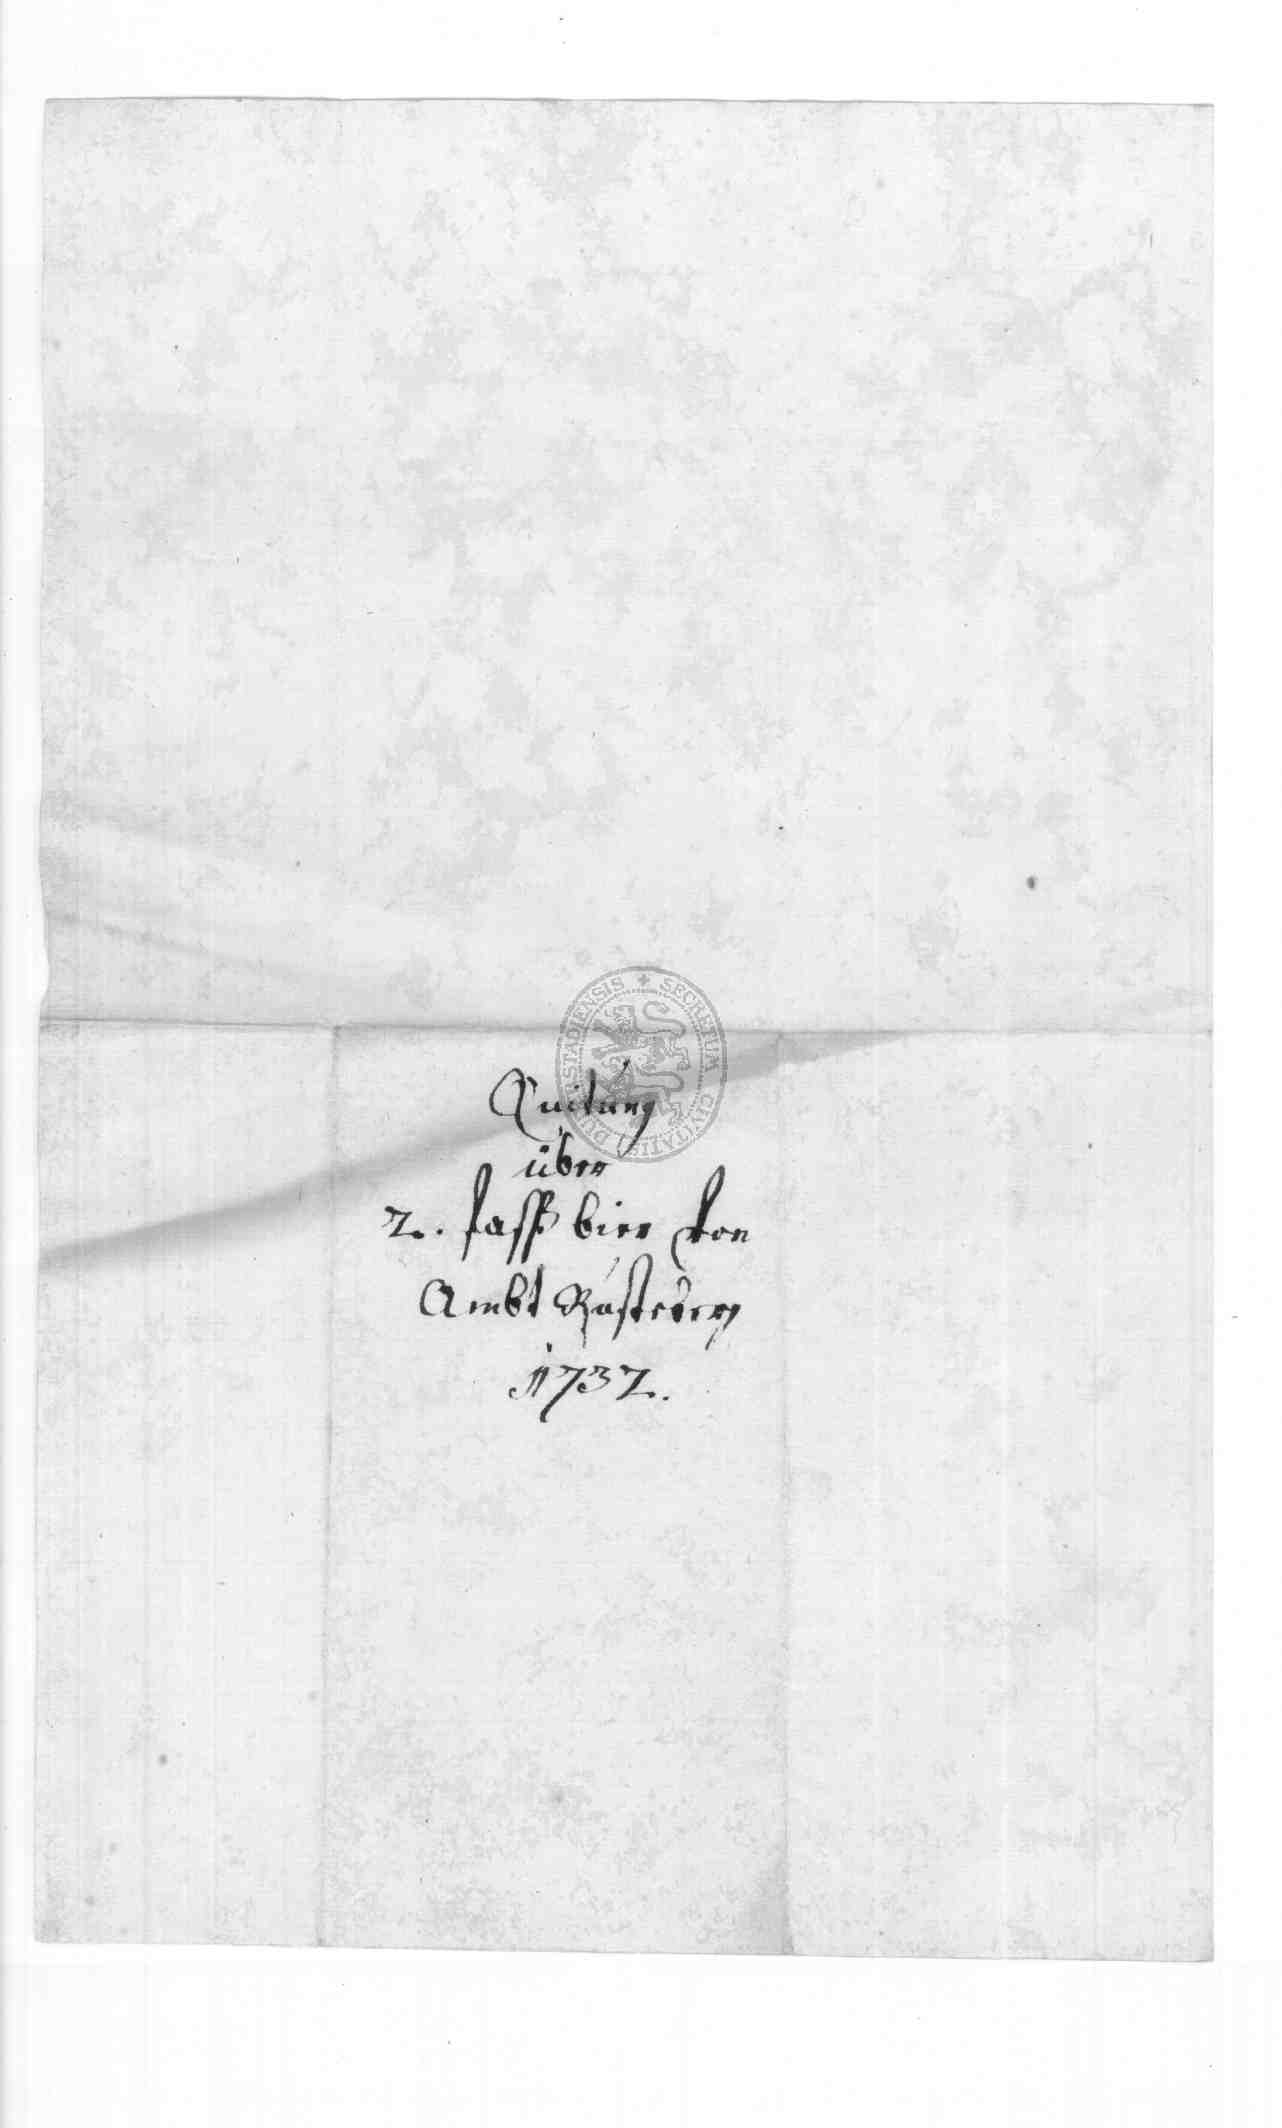 SECRETUM CIVITATIS DUDERSTADIENSIS
Quitung
über
2. fass bier von
Ambt Rusteberg
1732.